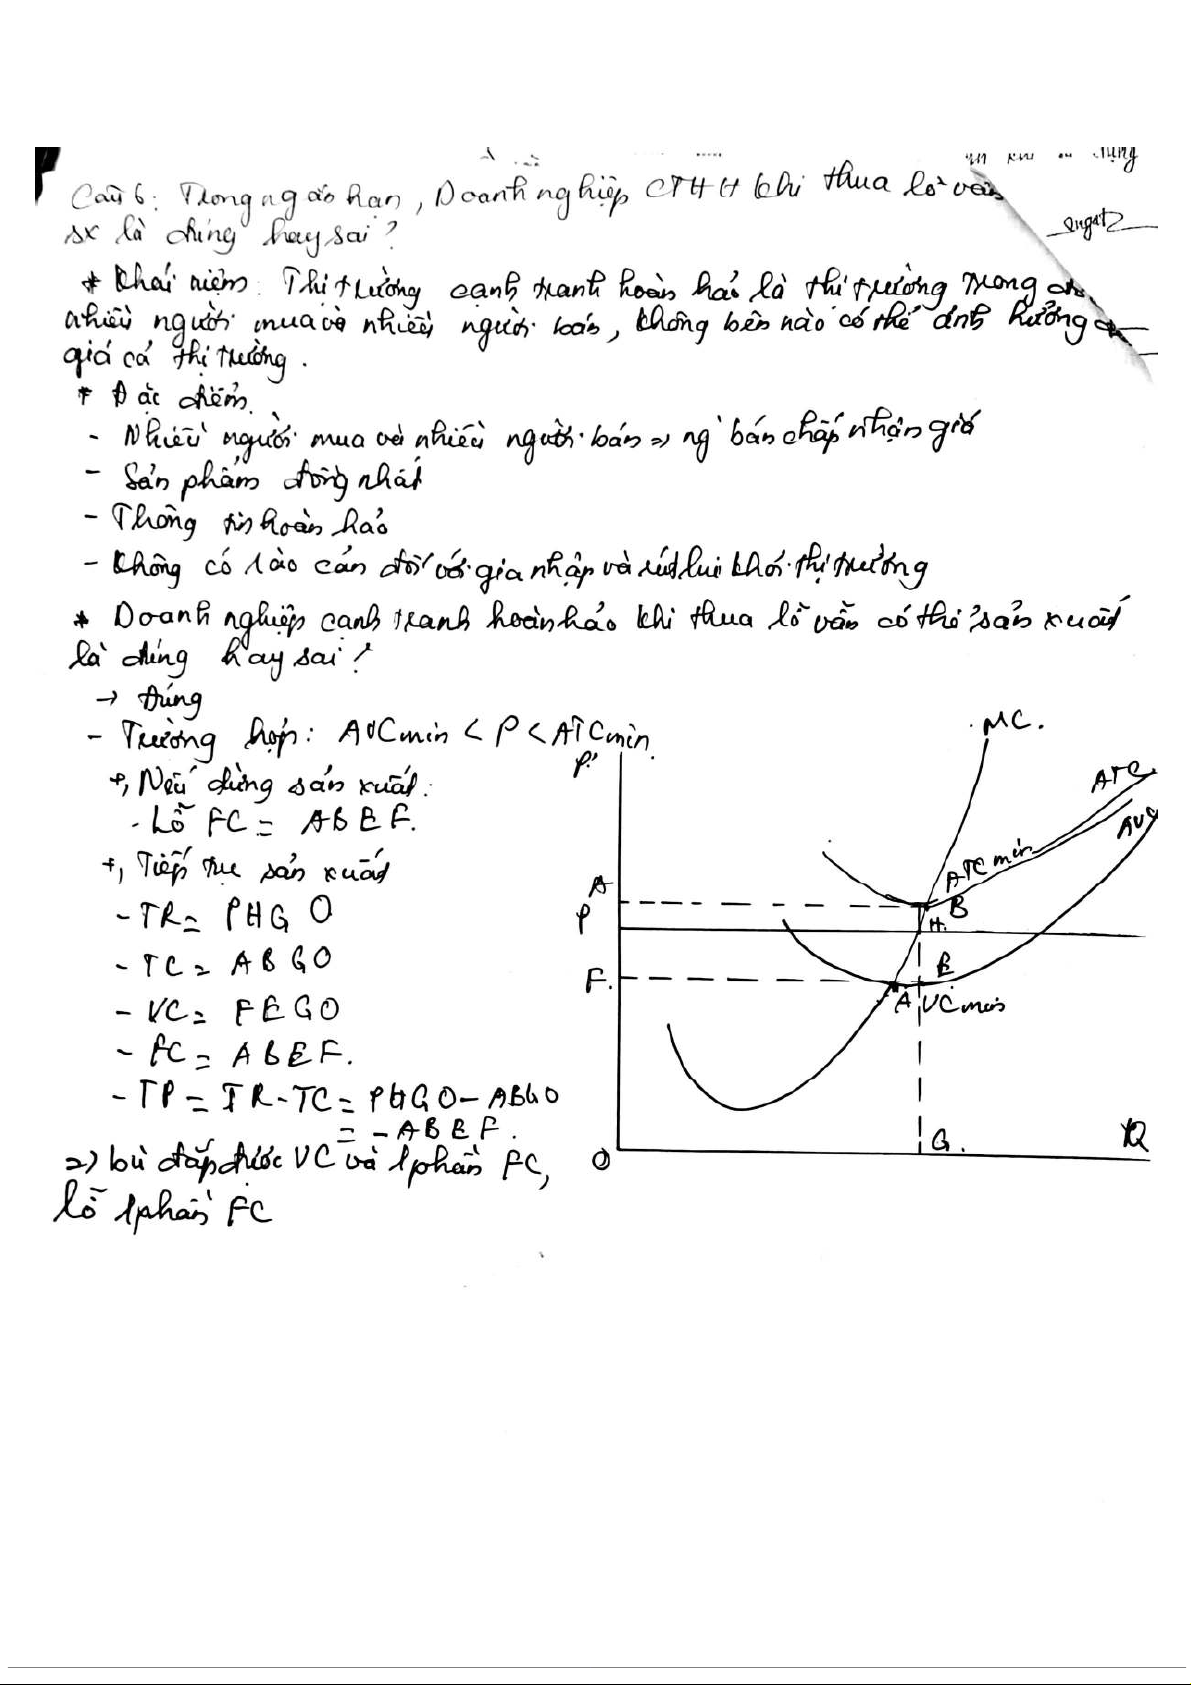 Câu 6: Trong ngắn hạn, Doanh nghiệp CTHH khi thua lỗ vẫn
sx là đúng hay sai?
* Khái niệm: Thị trường cạnh tranh hoàn hảo là thị trường trong
nhiều người mua và nhiều người bán, không bên nào có thể ảnh hưởng
giá cả thị trường.
* Đặc điểm.
- Nhiều người mua và nhiều người bán => ng' bán chấp nhận giá
- Sản phẩm đồng nhất
- Thông tin hoàn hảo
- Không có rào cản đối với gia nhập và rút lui khỏi thị trường
* Doanh nghiệp cạnh tranh hoàn hảo khi thua lỗ vẫn có thể sản xuất
là đúng hay sai?
→ Đúng
- Trường hợp: AVCmin < P < ATCmin.
+, Nếu dừng sản xuất:
- Lỗ FC = ABEF.
+, Tiếp tục sản xuất
- TR = PHGO
- TC = ABGO
- VC = FEGO
- FC = ABEF.
- TP = TR - TC = PHGO - ABGO
= - ABEF.
=> bù đắp được VC và 1 phần FC,
lỗ 1 phần FC
MC.
P
ATC
AVC
ATC min
A
B
P
H.
F.
E
AVC min
O
G.
Q